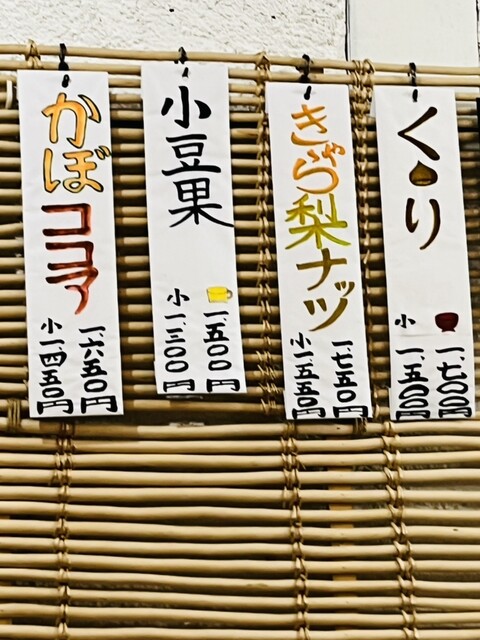 くり
一、七〇〇円
小 一、五〇〇円
きゃら梨ナッツ
一、七五〇円
小一、五五〇円
小豆果
一、五〇〇円
小 一、三〇〇円
かぼココア
一、六五〇円
小一、四五〇円